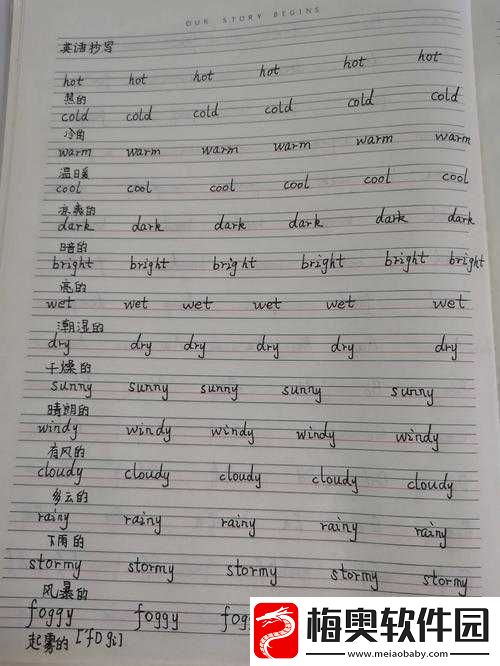 OUR STORY BEGINS
英语抄写
hot hot hot hot hot hot
热的
cold cold cold cold cold cold
冷的
warm warm warm warm warm warm
温暖
cool cool cool cool cool cool
凉爽的
dark dark dark dark dark dark
暗的
bright bright bright bright bright bright
亮的
wet wet wet wet wet wet
潮湿的
dry dry dry dry dry dry
干燥的
sunny sunny sunny sunny sunny
晴朗的
windy windy windy windy windy
有风的
cloudy cloudy cloudy cloudy cloudy
多云的
rainy rainy rainy rainy rainy
下雨的
stormy stormy stormy stormy stormy
风暴的
foggy foggy fog
起雾的 [fɒgi]
梅奥软件园
www.meiaobaby.com